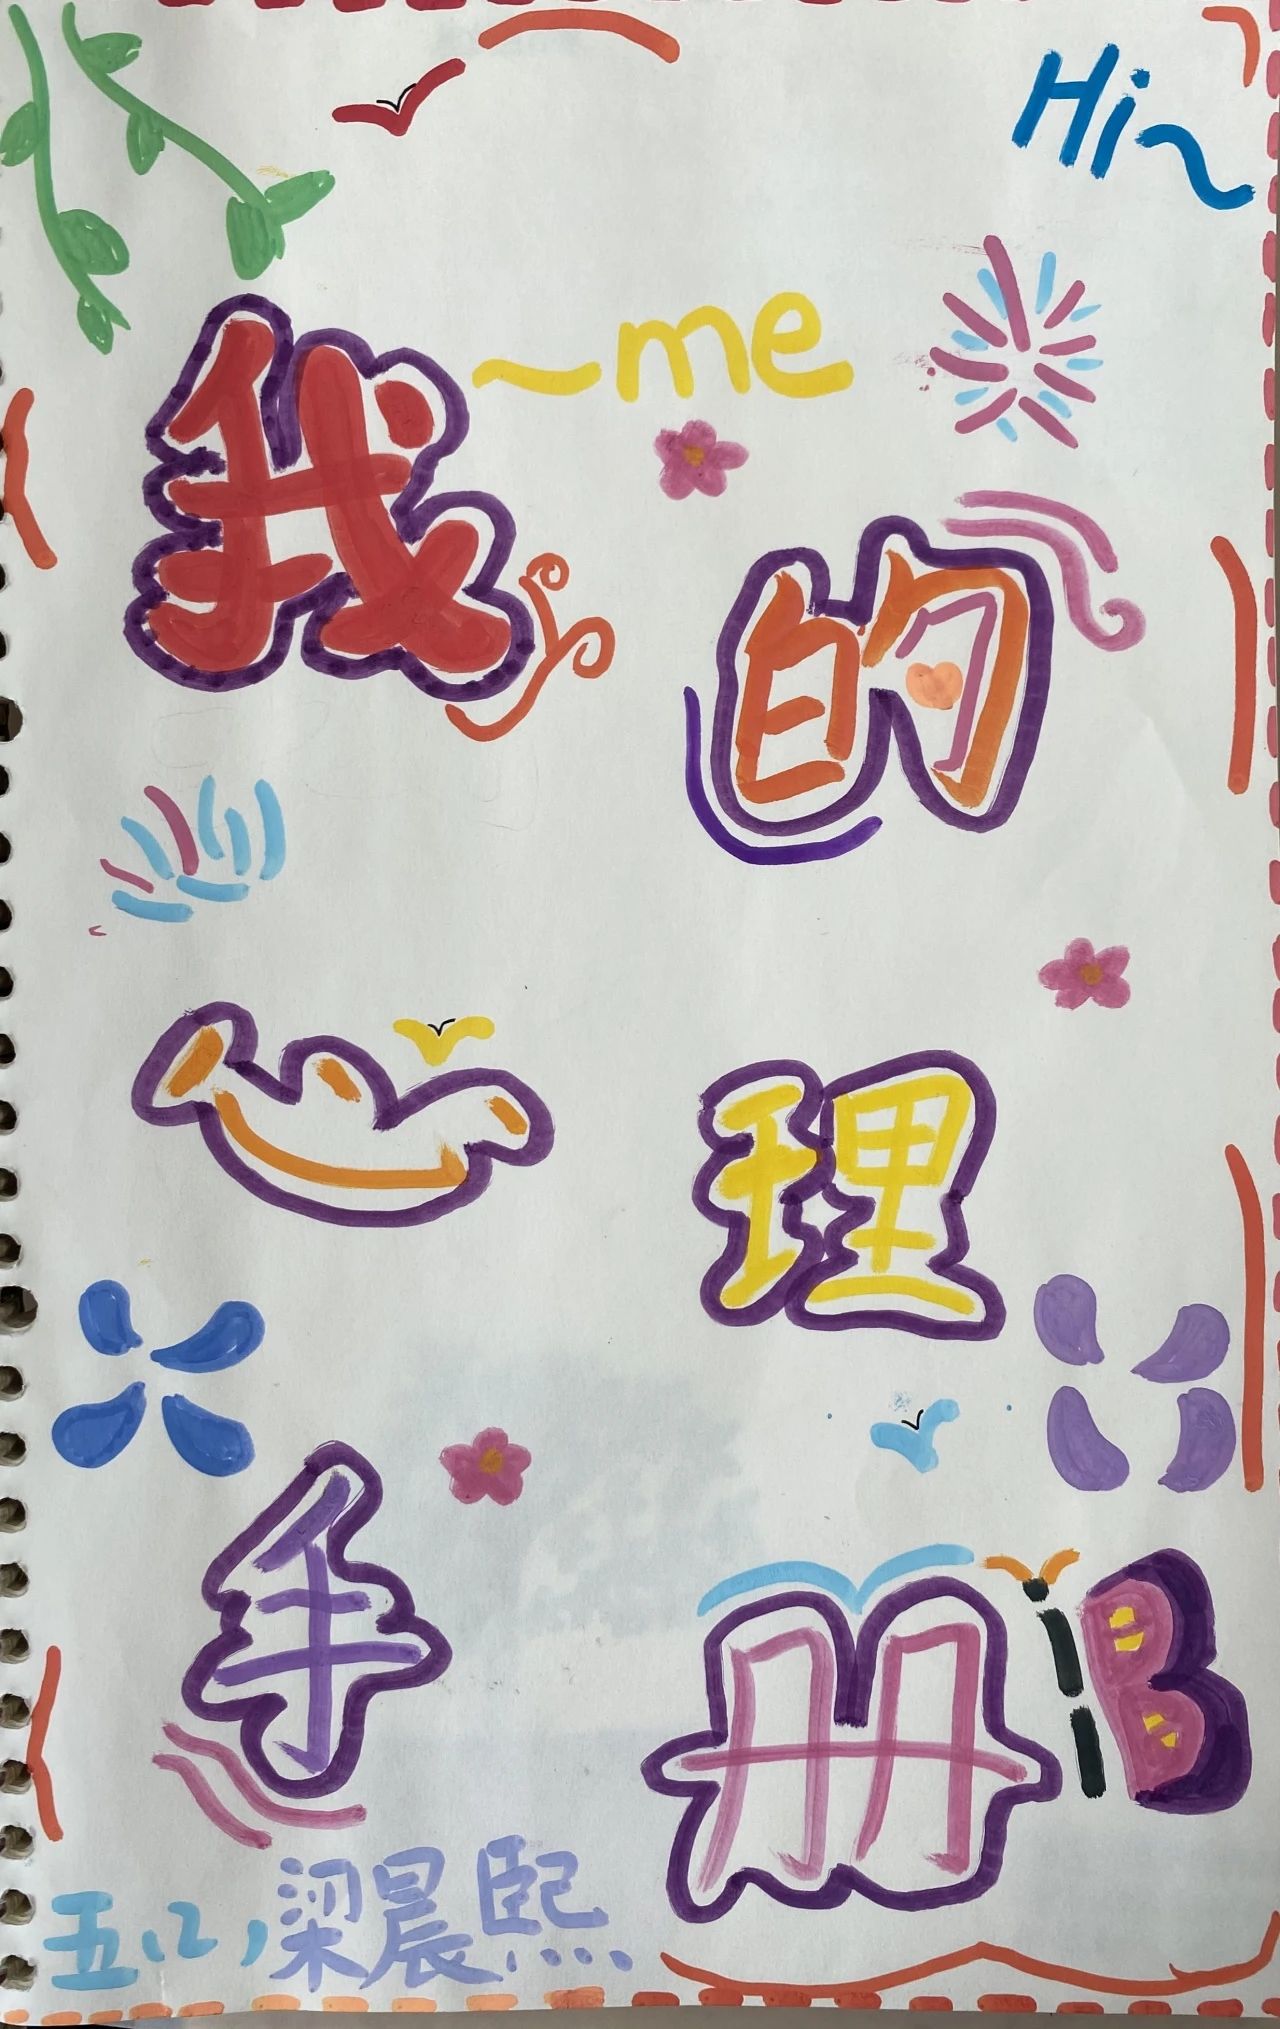 Hi~
我~me
的
心理
手册
五(2)梁晨熙